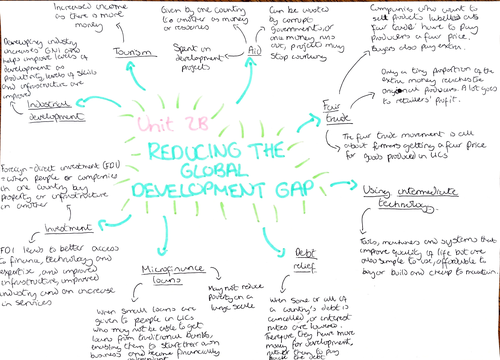 Unit 2B
REDUCING THE
GLOBAL
DEVELOPMENT GAP
Increased income
as there is more
money
Tourism
Given by one country
to another as money
or resources
Spent on
development
projects
Aid
Can be wasted
by corrupt
governments, or
once money runs
out, projects may
stop working
Companies who want to
sell products labelled as
fair trade have to pay
producers a fair price.
Buyers also pay extra.
Only a tiny proportion of the
extra money reaches the
original producers. A lot goes
to retailers' profit.
Fair
trade
The fair trade movement is all
about farmers getting a fair price
for goods produced in LICs
Using intermediate
technology
Tools, machines and systems that
improve quality of life but are
also simple to use, affordable to
buy or build and cheap to maintain.
Debt
relief
When some or all of
a country's debt is
cancelled, or interest
rates are lowered.
Therefore they have more
money for development,
rather than to pay
back the debt
Microfinance
loans
May not reduce
poverty on a
large scale
When small loans are
given to people in LICs
who may not be able to get
loans from traditional banks,
enabling them to start their own
business and become financially
Investment
Foreign-direct investment (FDI)
→ when people or companies
in one country buy
property or infrastructure
in another
FDI leads to better access
to finance, technology and
expertise, and improved
infrastructure, improved
industry and an increase
in services
Industrial
development
Developing industry
increases GNI and
helps improve levels of
development as
productivity, levels of skills
and infrastructure are
improved